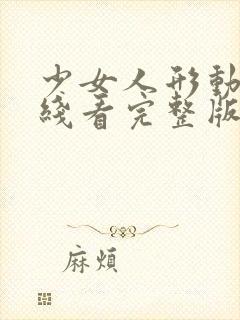 少女人形動
綫看完整版
麻煩